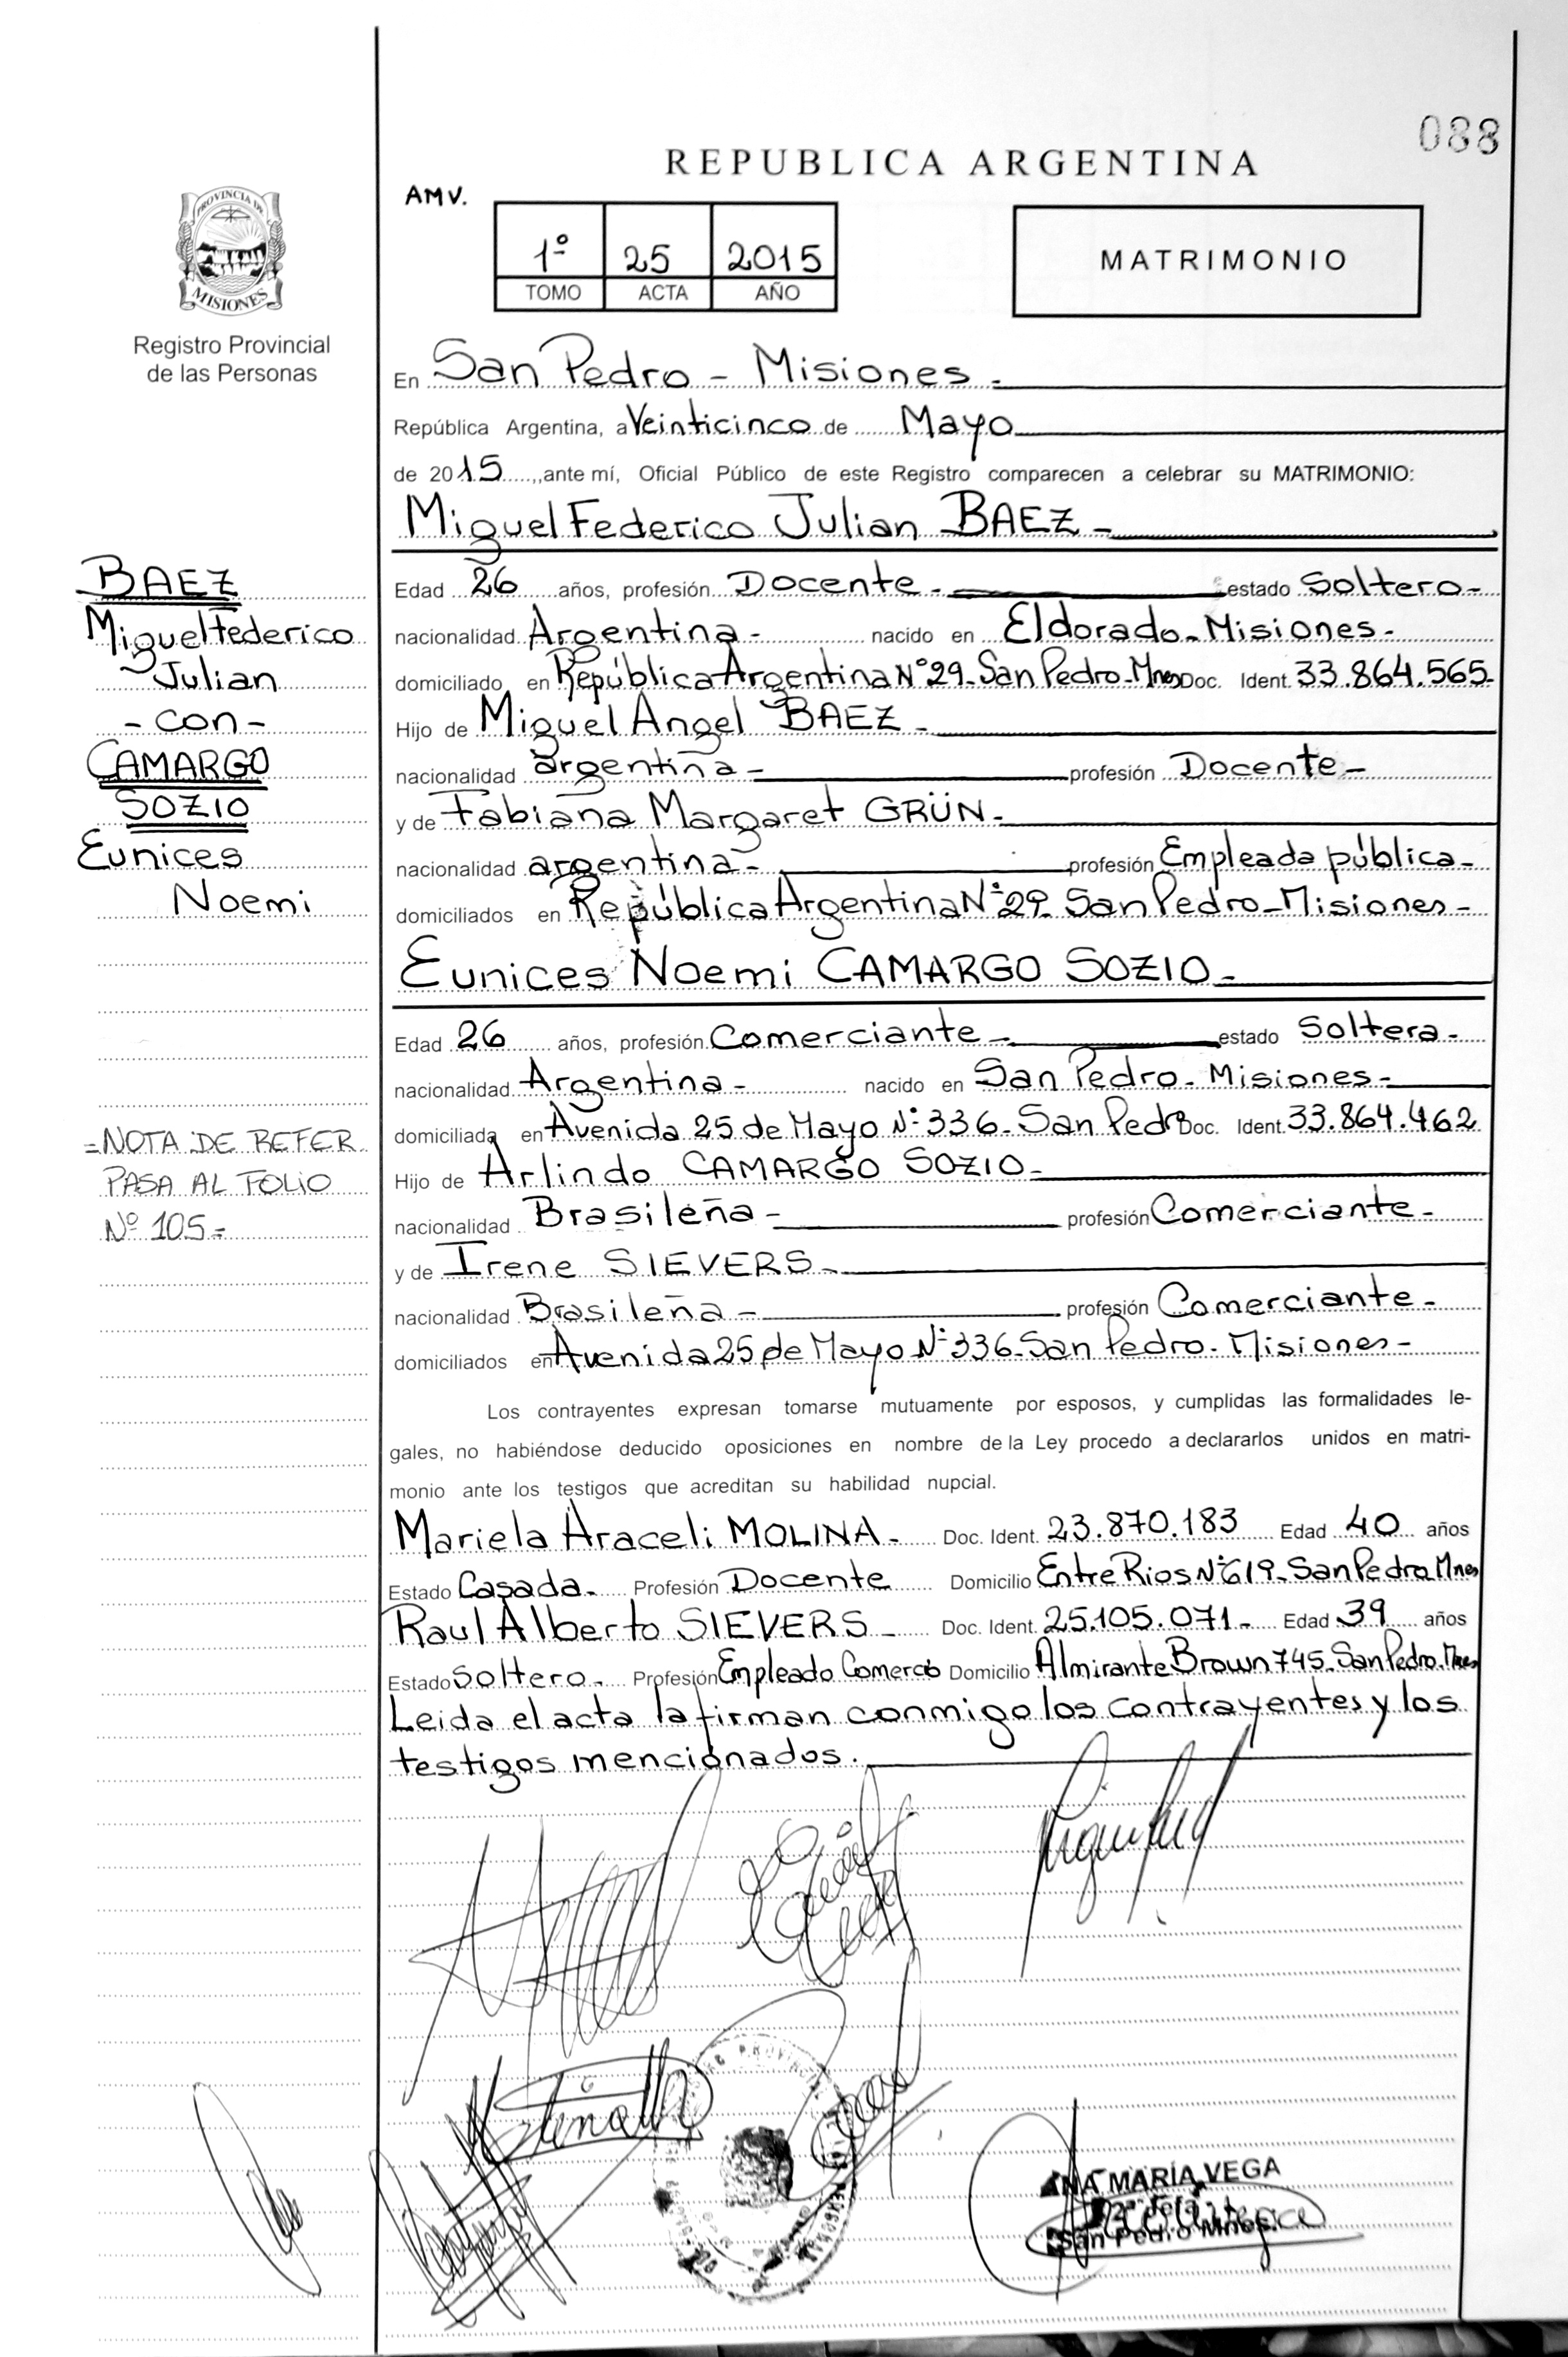 088
REPUBLICA ARGENTINA
AMV.
1º 25 2015
TOMO ACTA AÑO
MATRIMONIO
PROVINCIA DE
MISIONES
Registro Provincial
de las Personas
En San Pedro - Misiones -
República Argentina, a Veinticinco de Mayo
de 2015, ante mí, Oficial Público de este Registro comparecen a celebrar su MATRIMONIO:
Miguel Federico Julian BAEZ -
Edad 26 años, profesión Docente - estado Soltero -
nacionalidad Argentina - nacido en Eldorado - Misiones -
domiciliado en República Argentina N° 29 - San Pedro - Mnes Doc. Ident. 33.864.565 -
Hijo de Miguel Angel BAEZ -
nacionalidad argentina - profesión Docente -
y de Fabiana Margaret GRÜN -
nacionalidad argentina - profesión Empleada pública -
domiciliados en República Argentina N° 29 - San Pedro - Misiones -
Eunices Noemi CAMARGO SOZIO -
Edad 26 años, profesión Comerciante - estado Soltera -
nacionalidad Argentina - nacido en San Pedro - Misiones -
domiciliada en Avenida 25 de Mayo N° 336 - San Pedro Doc. Ident. 33.864.462
Hijo de Arlindo CAMARGO SOZIO -
nacionalidad Brasileña - profesión Comerciante -
y de Irene SIEVERS -
nacionalidad Brasileña - profesión Comerciante -
domiciliados en Avenida 25 de Mayo N° 336 - San Pedro - Misiones -
Los contrayentes expresan tomarse mutuamente por esposos, y cumplidas las formalidades le-
gales, no habiéndose deducido oposiciones en nombre de la Ley procedo a declararlos unidos en matri-
monio ante los testigos que acreditan su habilidad nupcial.
Mariela Araceli MOLINA - Doc. Ident. 23.870.183 Edad 40 años
Estado Casada - Profesión Docente Domicilio Entre Rios N° 619 - San Pedro Mnes
Raul Alberto SIEVERS - Doc. Ident. 25.105.071 - Edad 39 años
Estado Soltero - Profesión Empleado Comercio Domicilio Almirante Brown 745 - San Pedro - Mnes
Leida el acta la firman conmigo los contrayentes y los
testigos mencionados.
BAEZ
Miguel Federico
Julian
- con -
CAMARGO
SOZIO
Eunices
Noemi
= NOTA DE REFER
PASA AL FOLIO
Nº 105 =
ANA MARÍA VEGA
2ª Jefa
San Pedro Mnes.